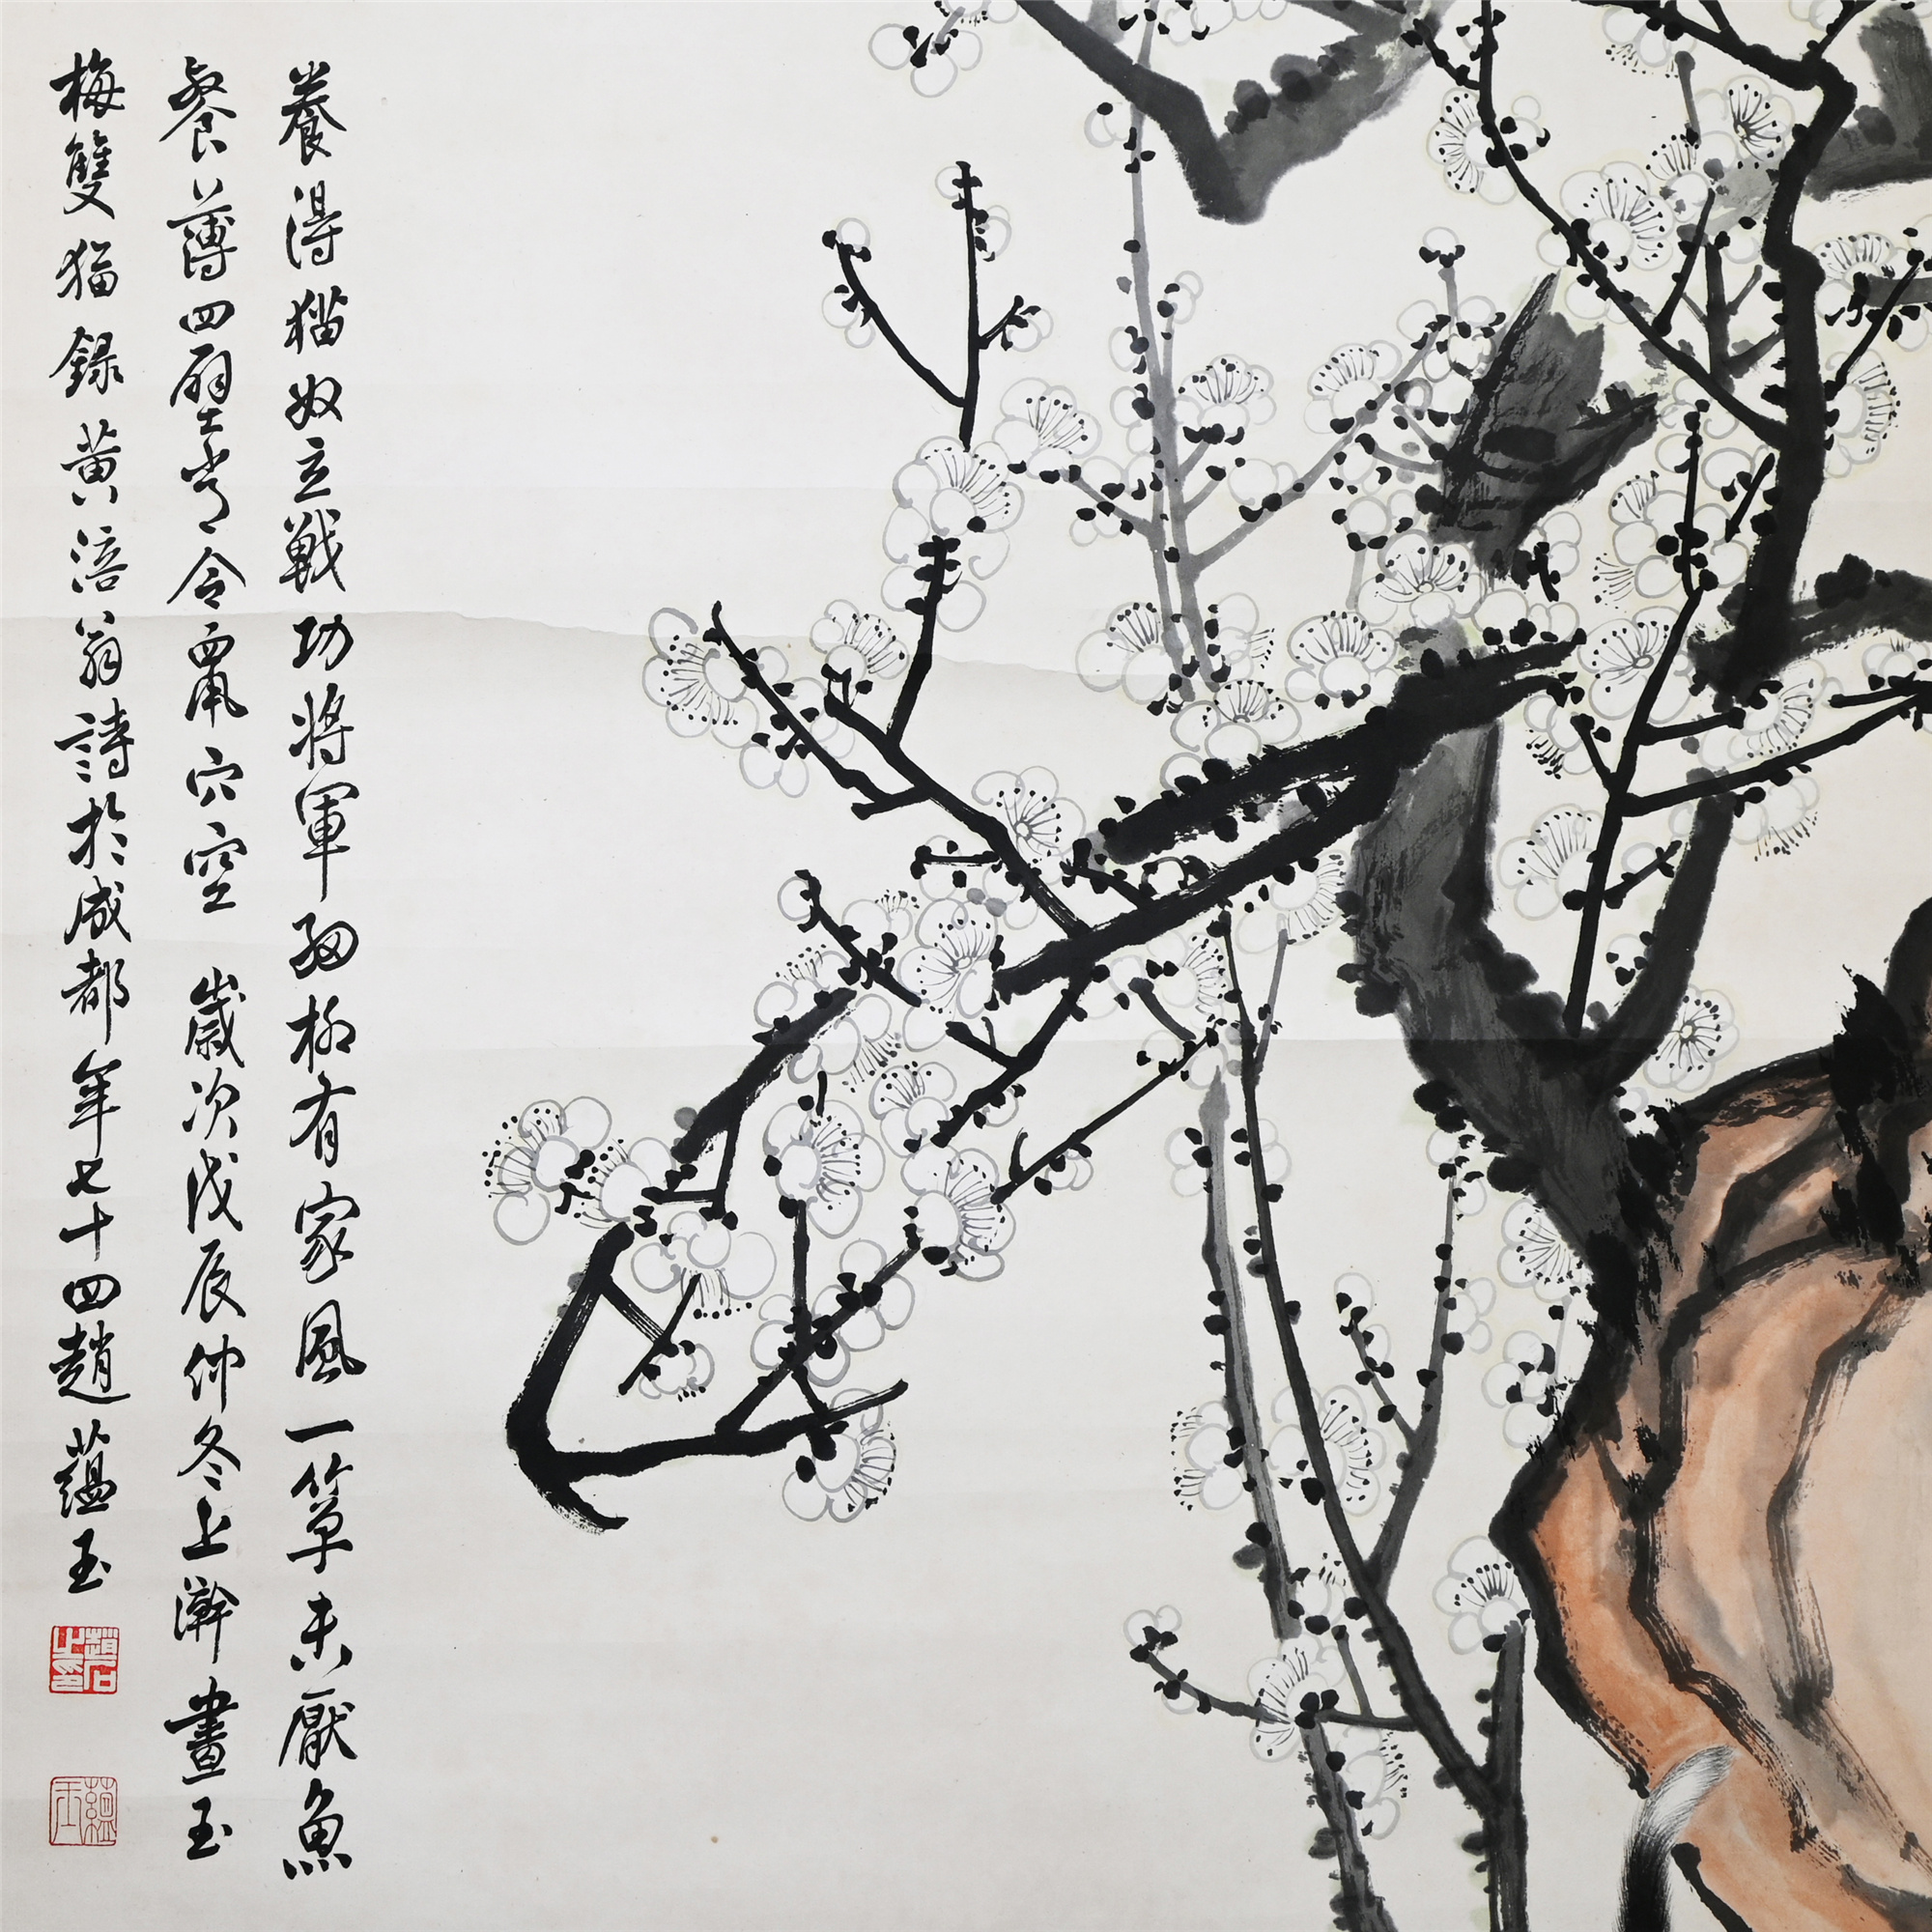 養得猫奴立戰功將軍細柳有家風一箪未厭魚
餐薄四壁當令鼠穴空 歲次戊辰仲冬上澣畫玉
梅雙猫錄黃涪翁詩於成都年七十四趙蘊玉
趙石之印
蘊玉